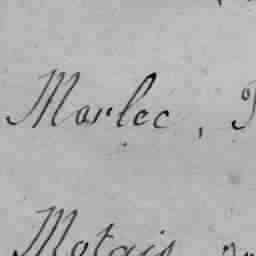 Marlec,
Motais